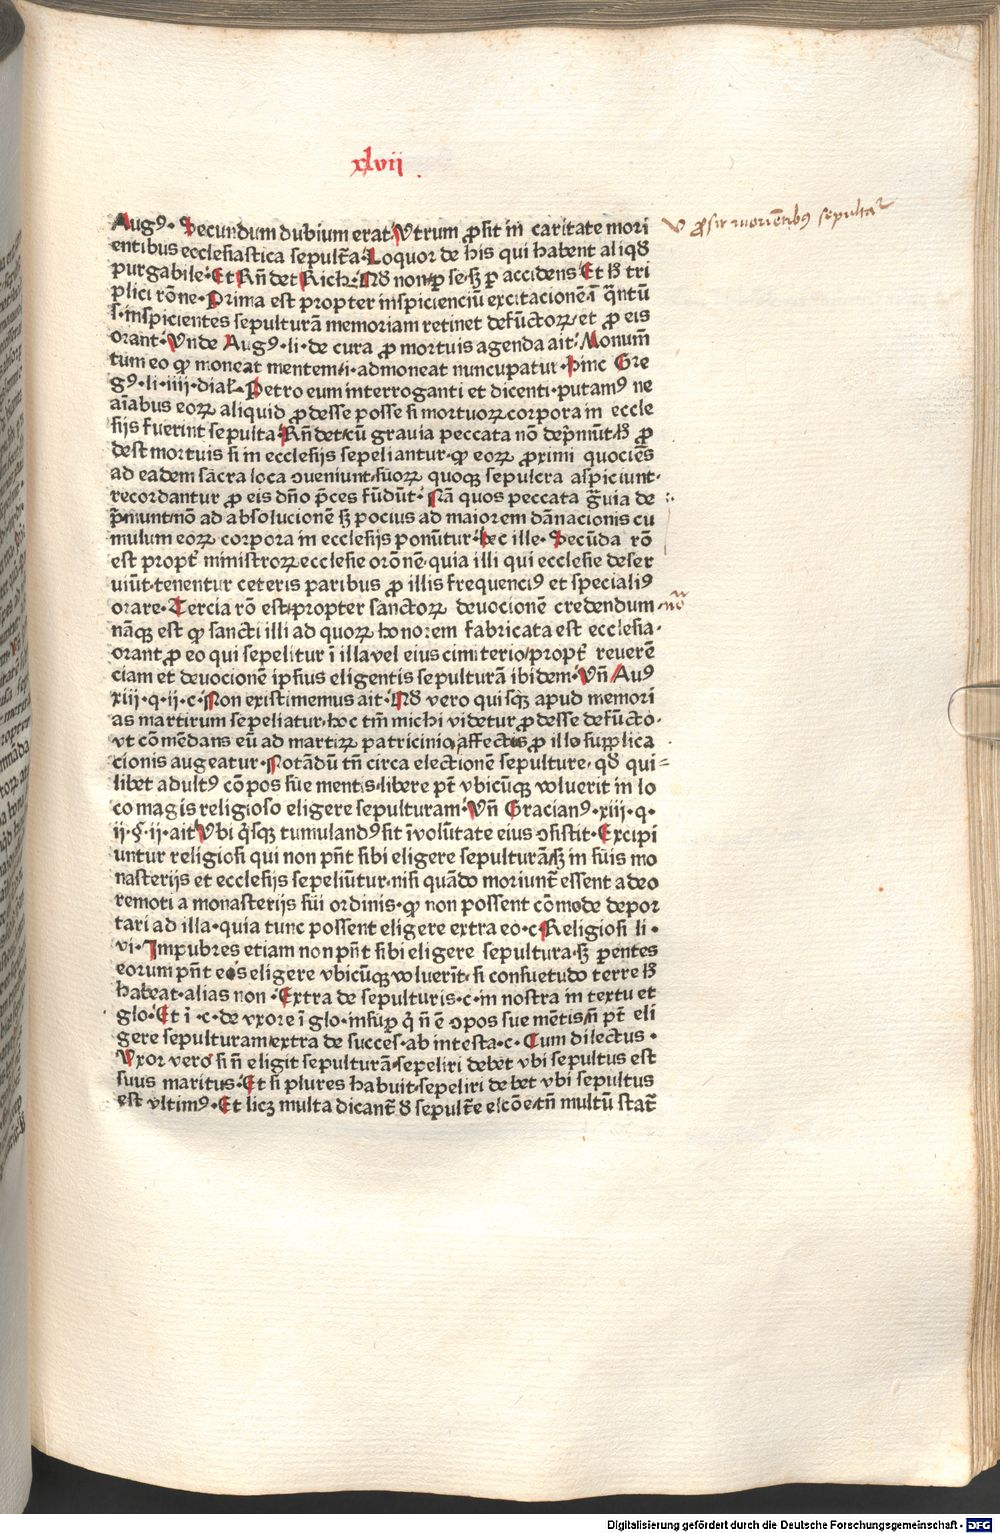 xlvii
Augꝰ· Secundum dubium erat Vtrum ꝓsit in caritate mori
entibus ecclesiastica sepult̃a·Loquor de his qui habent aliqð
purgabile·Et Rñdet Rich·Qð non ꝑ se·sꝫ ꝑ accidens Et hͦ tri
plici rõne·Prima est propter inspicienciũ excitacionẽ ĩ q̃ntũ
s·inspicientes sepulturã memoriam retinet defũctoꝝ·et ꝓ eis
orant·Vnde Augꝰ·li·de cura ꝓ mortuis agenda ait·Monum̃
tum eo ꝙ moneat mentem·i·admoneat nuncupatur·Hinc Gre
gꝰ·li·iiii·dial̃·Petro eum interroganti et dicenti·putamꝰ ne
aĩabus eoꝝ aliquid ꝓdesse posse si mortuoꝝ corpora in eccle
sijs fuerint sepulta·Rñdet·cũ grauia peccata nõ dep̃mũt·hͦ ꝓ
dest mortuis si in ecclesijs sepeliantur·ꝙ eoꝝ ꝓximi quociẽs
ad eadem sacra loca ꝯueniunt·suoꝝ quoqꝫ sepulcra aspiciunt·
recordantur ꝓ eis dño p̃ces fũdũt·Nã quos peccata g̃uia de
p̃munt·nõ ad absolucionẽ sꝫ pocius ad maiorem dãnacionis cu
mulum eoꝝ corpora in ecclesijs ponũtur·Hec ille·Secũda rõ
est propt̃ ministroꝝ ecclesie orõnẽ·quia illi qui ecclesie deser
uiũt·tenentur ceteris paribus ꝓ illis frequenciꝰ et specialiꝰ
orare·Tercia rõ est·propter sanctoꝝ deuocionẽ credendum
nãqꝫ est ꝙ sancti illi ad quoꝝ honorem fabricata est ecclesia·
orant ꝓ eo qui sepelitur ĩ illa vel eius cimiterio/propt̃ reuerẽ
ciam et deuocionẽ ipsius eligentis sepulturã ibidem·Vñ Augꝰ
xiii·q·ii·c·Non existimemus ait·Qð vero quisqꝫ apud memori
as martirum sepeliatur·hoc tm̃ michi videtur ꝓdesse defũcto·
vt cõmẽdans eũ ad martiꝝ patricinio affectis ꝓ illo supplica
cionis augeatur·Notãdũ tñ circa electionẽ sepulture·qð qui⸗
libet adultꝰ cõpos sue mentis·libere pt̃ vbicũqꝫ voluerit in lo
co magis religioso eligere sepulturam·Vñ Gracianꝰ·xiii·q·
ii·§·ii·ait Vbi q̃sqꝫ tumulandꝰ sit ĩ volũtate eius ꝯsistit·Excipi
untur religiosi qui non pñt sibi eligere sepulturã·sꝫ in suis mo
nasterijs et ecclesijs sepeliũtur·nisi quãdo moriunt̃ essent adeo
remoti a monasterijs sui ordinis·ꝙ non possent cõmode depor
tari ad illa·quia tunc possent eligere extra eo·c·Religiosi li·
vi·Impubres etiam non pñt sibi eligere sepultura·sꝫ ꝑentes
eorum pñt eos eligere vbicũqꝫ voluerĩt·si consuetudo terre hͦ
habeat·alias non·Extra de sepulturis·c·in nostra in textu et
glo·Et ĩ ·c·de vxore ĩ glo·insuꝑ q̃ ñ ẽ ꝯpos sue mẽtis/ñ pt̃ eli
gere sepulturam·extra de succes·ab intesta·c·Cum dilectus·
Vxor vero si ñ eligit sepulturã·sepeliri debet vbi sepultus est
suus maritus·Et si plures habuit·sepeliri debet vbi sepultus
est vltimꝰ·Et licꝫ multa dicant̃ ð sepult̃e elcõe·tñ multũ stat̃
V ꝓsit morientibꝰ sepulta
nõ
Digitalisierung gefördert durch die Deutsche Forschungsgemeinschaft - DFG